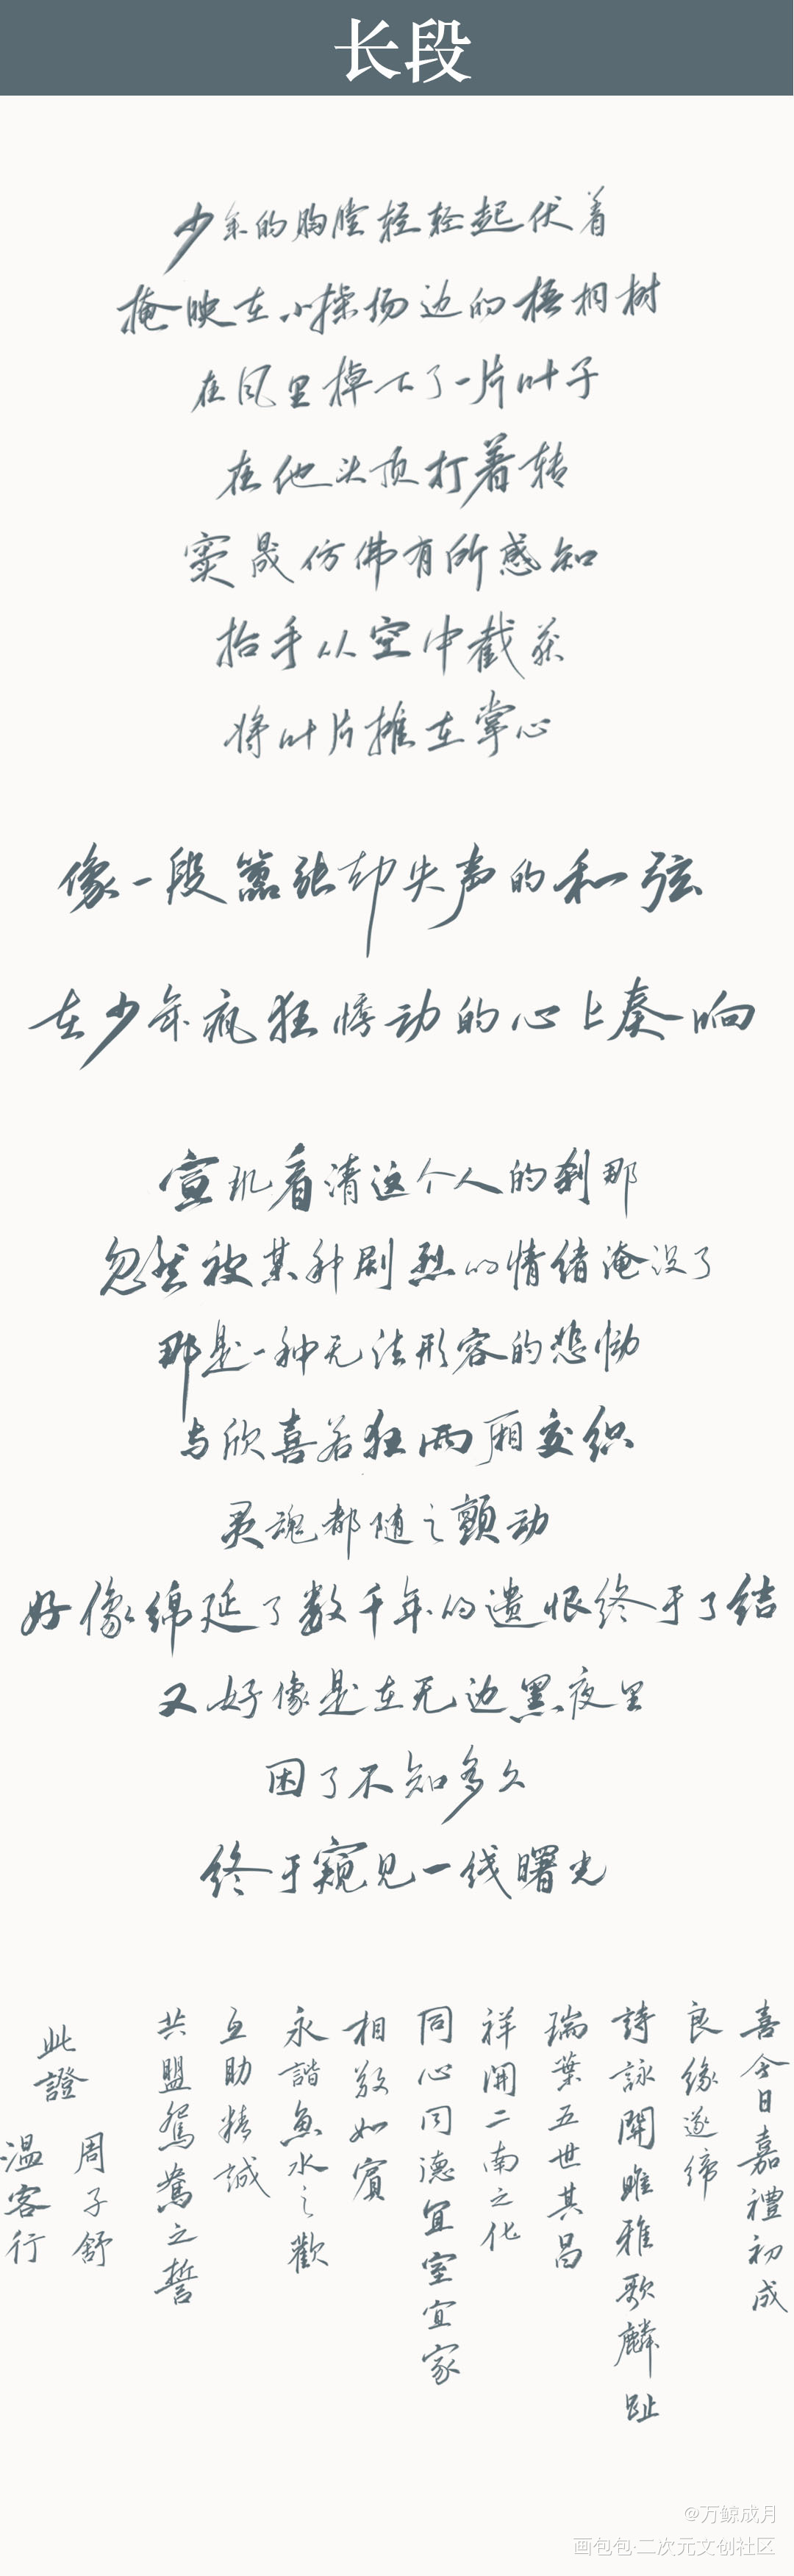 长段
少年的胸膛轻轻起伏着
掩映在小操场边的梧桐树
在风里掉下了一片叶子
在他头顶打着转
窦晟仿佛有所感知
抬手从空中截获
将叶片摊在掌心
像一段嚣张却失声的和弦
在少年疯狂悸动的心上奏响
宣玑看清这个人的刹那
忽然被某种剧烈的情绪淹没了
那是一种无法形容的悲恸
与欣喜若狂两厢交织
灵魂都随之颤动
好像绵延了数千年的遗恨终于了结
又好像是在无边黑夜里
困了不知多久
终于窥见一线曙光
喜今日嘉禮初成
良缘遂缔
詩詠關雎雅歌麟趾
瑞葉五世其昌
祥開二南之化
同心同德宜室宜家
相敬如賓
永諧魚水之歡
互助精誠
共盟鴛鴦之誓
此證
周子舒
温客行
@万鲸成月
画包包·二次元文创社区